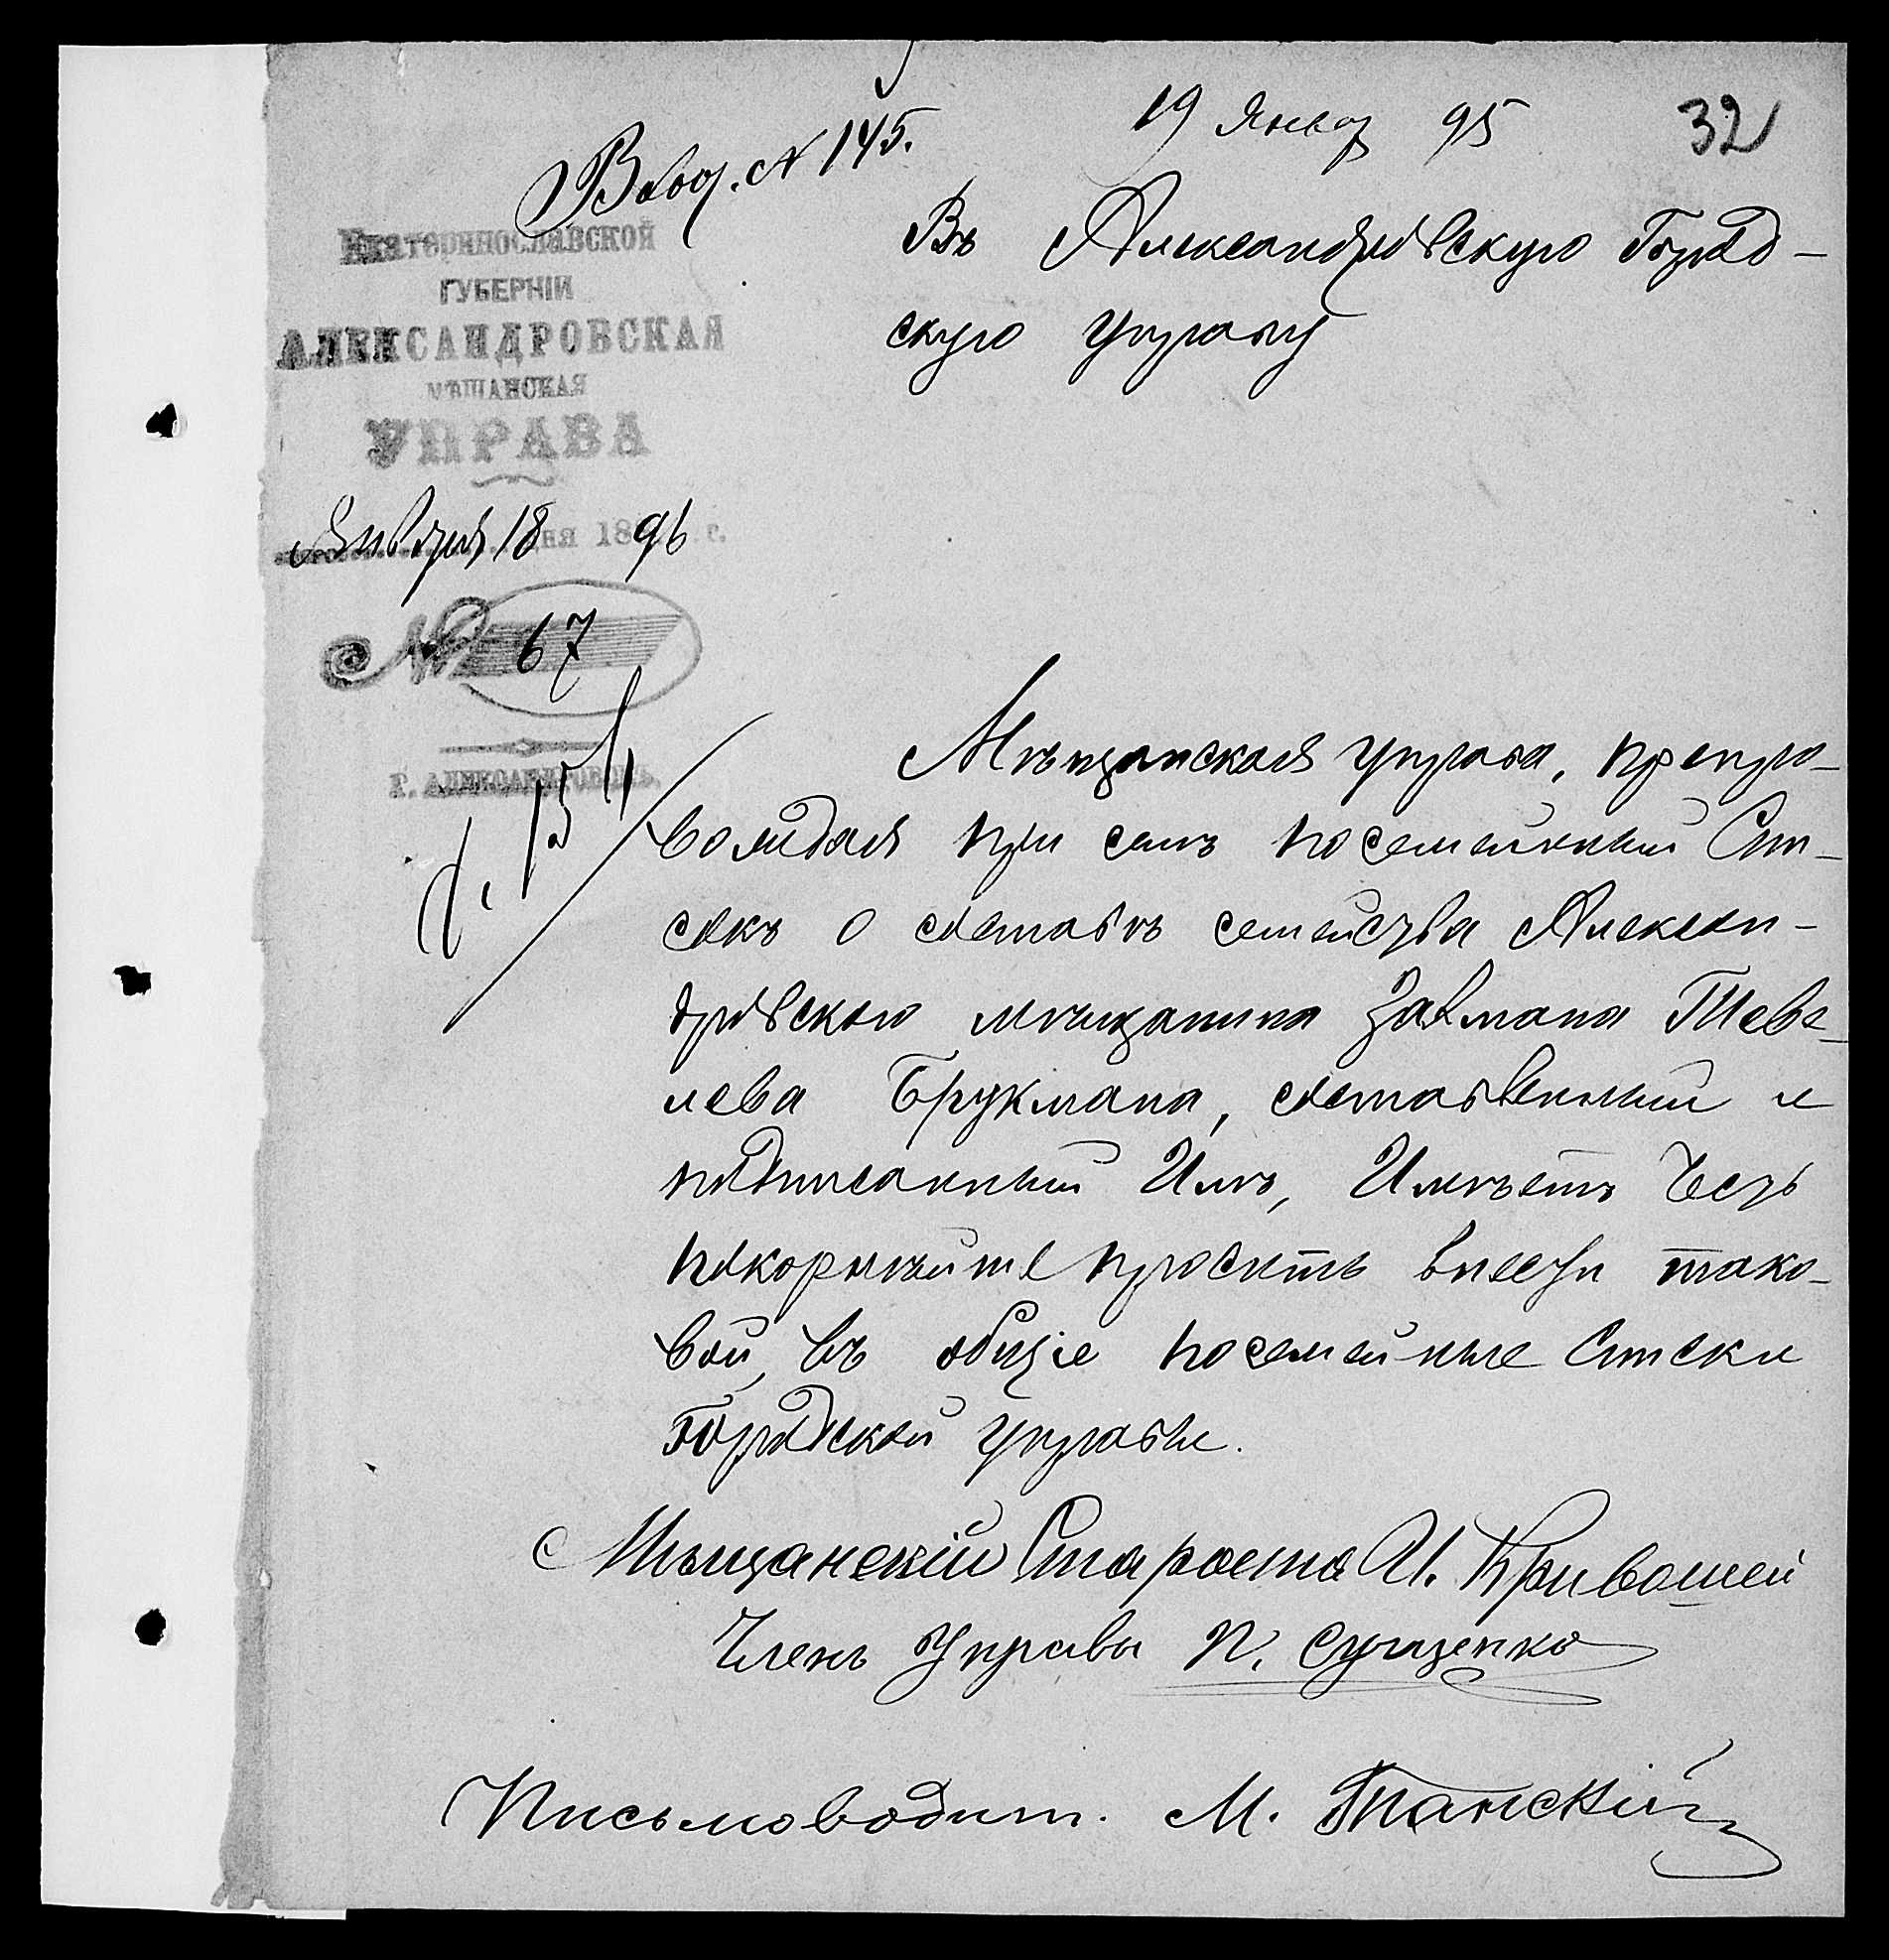 19 Январ 95
32
Вход. № 145.
Екатеринославской
губерніи
Александровская
мѣщанская
управа
Января 18 дня 1896 г.
№ 67
г. Александровскъ.
Въ Александровскую Город-
скую Управу
Мѣщанская управа, препро-
вождая при семъ посемейный Спи-
сокъ о составѣ семейства Алексан-
дровскаго мѣщанина Залмана Теве-
лева Брукмана, составленный и
подписанный Имъ, Имѣетъ Честь
покорнѣйше просить внести тако-
вой, въ общіе посемейные Списки
Городской Управы.
Мѣщанскій Староста И. Кривошей
Членъ Управы П. Сущенко
Письмоводит. М. Танскій